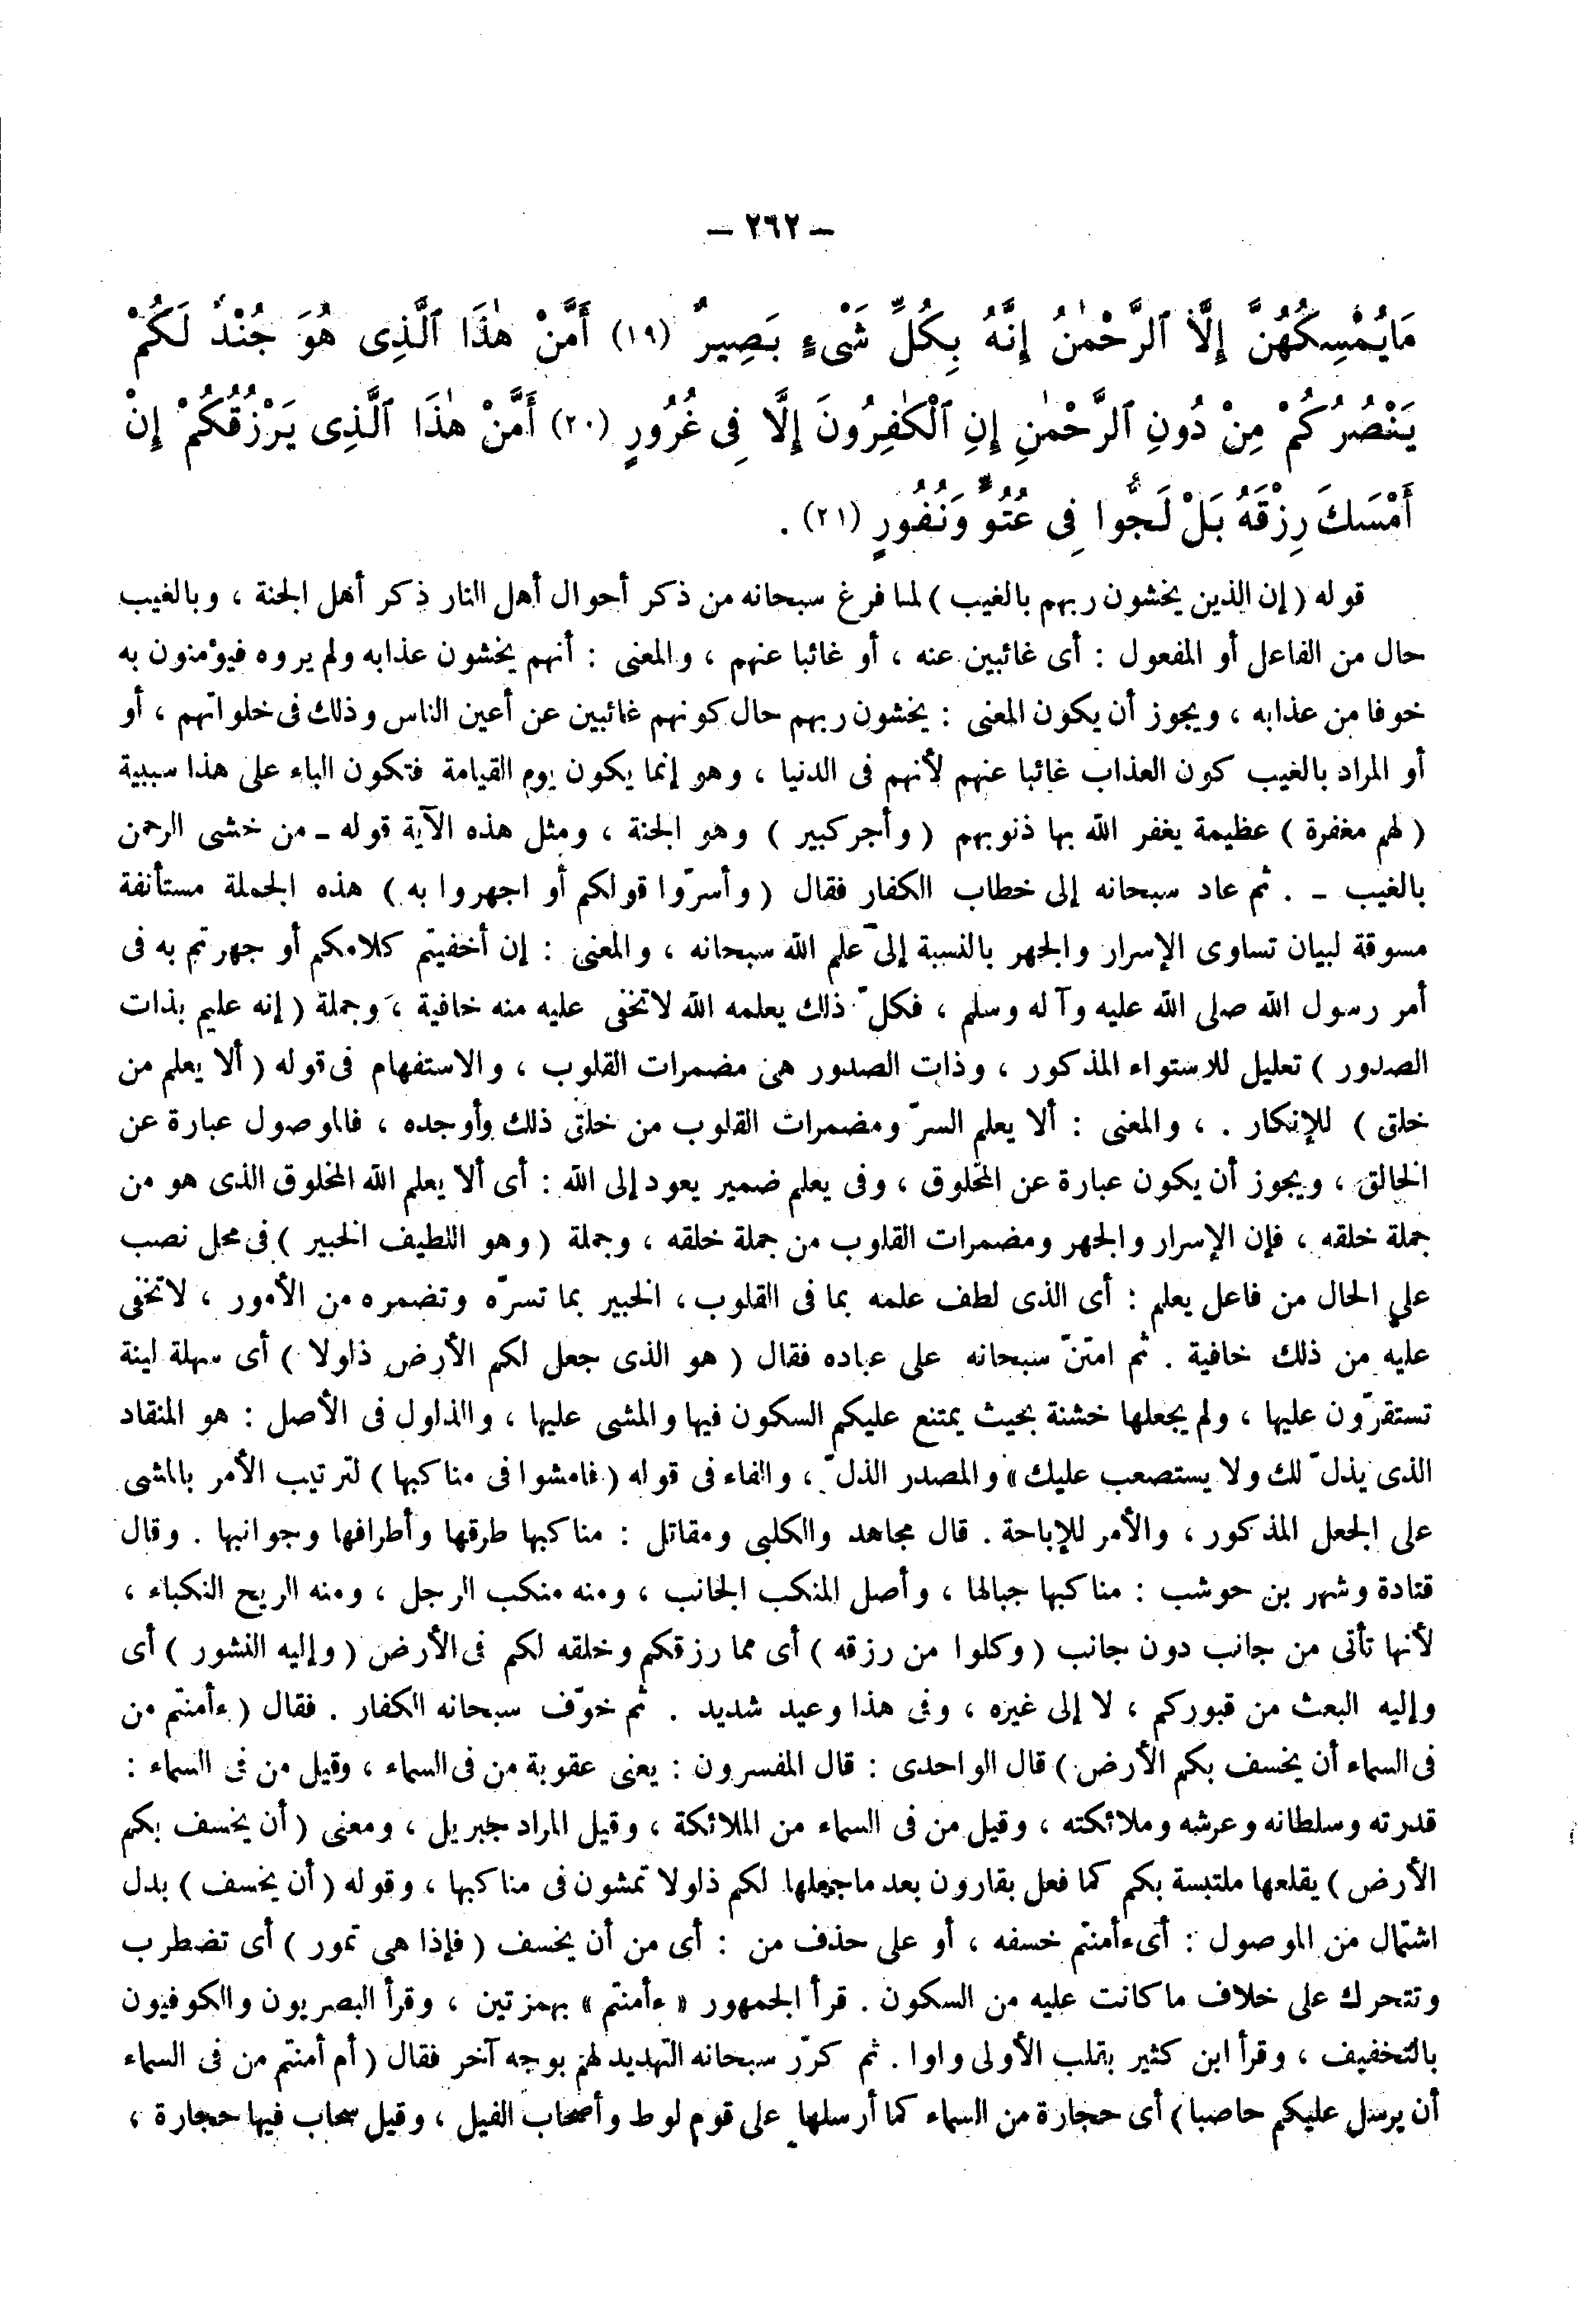 – ٢٦٢ –
مَايُمْسِكُهُنَّ إِلَّا ٱلرَّحْمٰنُ إِنَّهُ بِكُلِّ شَىْءٍ بَصِيرٌ (١٩) أَمَّنْ هٰذَا ٱلَّذِى هُوَ جُنْدٌ لَكُمْ
يَنْصُرُكُمْ مِنْ دُونِ ٱلرَّحْمٰنِ إِنِ ٱلْكَٰفِرُونَ إِلَّا فِى غُرُورٍ (٢٠) أَمَّنْ هٰذَا ٱلَّذِى يَرْزُقُكُمْ إِنْ
أَمْسَكَ رِزْقَهُ بَلْ لَجُّوا فِى عُتُوٍّ وَنُفُورٍ (٢١) .
قوله ( إن الذين يخشون ربهم بالغيب ) لما فرغ سبحانه من ذكر أحوال أهل النار ذكر أهل الجنة ، وبالغيب
حال من الفاعل أو المفعول : أى غائبين عنه ، أو غائبا عنهم ، والمعنى : أنهم يخشون عذابه ولم يروه فيؤمنون به
خوفا من عذابه ، ويجوز أن يكون المعنى : يخشون ربهم حال كونهم غائبين عن أعين الناس وذلك فى خلواتهم ، أو
أو المراد بالغيب كون العذاب غائبا عنهم لأنهم فى الدنيا ، وهو إنما يكون يوم القيامة فتكون الباء على هذا سببية
( لهم مغفرة ) عظيمة يغفر الله بها ذنوبهم ( وأجر كبير ) وهو الجنة ، ومثل هذه الآية قوله ـ من خشى الرحمن
بالغيب ـ . ثم عاد سبحانه إلى خطاب الكفار فقال ( وأسرّوا قولكم أو اجهروا به ) هذه الجملة مستأنفة
مسوقة لبيان تساوى الإسرار والجهر بالنسبة إلى علم الله سبحانه ، والمعنى : إن أخفيتم كلامكم أو جهرتم به فى
أمر رسول الله صلى الله عليه وآله وسلم ، فكلّ ذلك يعلمه الله لاتخفى عليه منه خافية ، وجملة ( إنه عليم بذات
الصدور ) تعليل للاستواء المذكور ، وذات الصدور هى مضمرات القلوب ، والاستفهام فى قوله ( ألا يعلم من
خلق ) للإنكار . ، والمعنى : ألا يعلم السرّ ومضمرات القلوب من خلق ذلك وأوجده ، فالموصول عبارة عن
الخالق ، ويجوز أن يكون عبارة عن المخلوق ، وفى يعلم ضمير يعود إلى الله : أى ألا يعلم الله المخلوق الذى هو من
جملة خلقه ، فإن الإسرار والجهر ومضمرات القلوب من جملة خلقه ، وجملة ( وهو اللطيف الخبير ) فى محل نصب
على الحال من فاعل يعلم : أى الذى لطف علمه بما فى القلوب ، الخبير بما تسرّه وتضمره من الأمور ، لاتخفى
عليه من ذلك خافية . ثم امتنّ سبحانه على عباده فقال ( هو الذى جعل لكم الأرض ذلولا ) أى سهلة لينة
تستقرّون عليها ، ولم يجعلها خشنة بحيث يمتنع عليكم السكون فيها والمشى عليها ، والذلول فى الأصل : هو المنقاد
الذى يذلّ لك ولا يستصعب عليك» والمصدر الذلّ ، والفاء فى قوله ( فامشوا فى مناكبها ) لترتيب الأمر بالمشى
على الجعل المذكور ، والأمر للإباحة . قال مجاهد والكلبى ومقاتل : مناكبها طرقها وأطرافها وجوانبها . وقال
قتادة وشهر بن حوشب : مناكبها جبالها ، وأصل المنكب الجانب ، ومنه منكب الرجل ، ومنه الريح النكباء ،
لأنها تأتى من جانب دون جانب ( وكلوا من رزقه ) أى مما رزقكم وخلقه لكم فى الأرض ( وإليه النشور ) أى
وإليه البعث من قبوركم ، لا إلى غيره ، وفى هذا وعيد شديد . ثم خوّف سبحانه الكفار . فقال ( ءأمنتم من
فى السماء أن يخسف بكم الأرض ) قال الواحدى : قال المفسرون : يعنى عقوبة من فى السماء ، وقيل من فى السماء :
قدرته وسلطانه وعرشه وملائكته ، وقيل من فى السماء من الملائكة ، وقيل المراد جبريل ، ومعنى ( أن يخسف بكم
الأرض ) يقلعها ملتبسة بكم كما فعل بقارون بعد ماجعلها لكم ذلولا تمشون فى مناكبها ، وقوله ( أن يخسف ) بدل
اشتمال من الموصول : أى ءأمنتم خسفه ، أو على حذف من : أى من أن يخسف ( فإذا هى تمور ) أى تضطرب
وتتحرك على خلاف ماكانت عليه من السكون . قرأ الجمهور « ءأمنتم » بهمزتين ، وقرأ البصريون والكوفيون
بالتخفيف ، وقرأ ابن كثير بقلب الأولى واوا . ثم كرّر سبحانه التهديد لهم بوجه آخر فقال ( أم أمنتم من فى السماء
أن يرسل عليكم حاصبا ) أى حجارة من السماء كما أرسلها على قوم لوط وأصحاب الفيل ، وقيل سحاب فيها حجارة ،